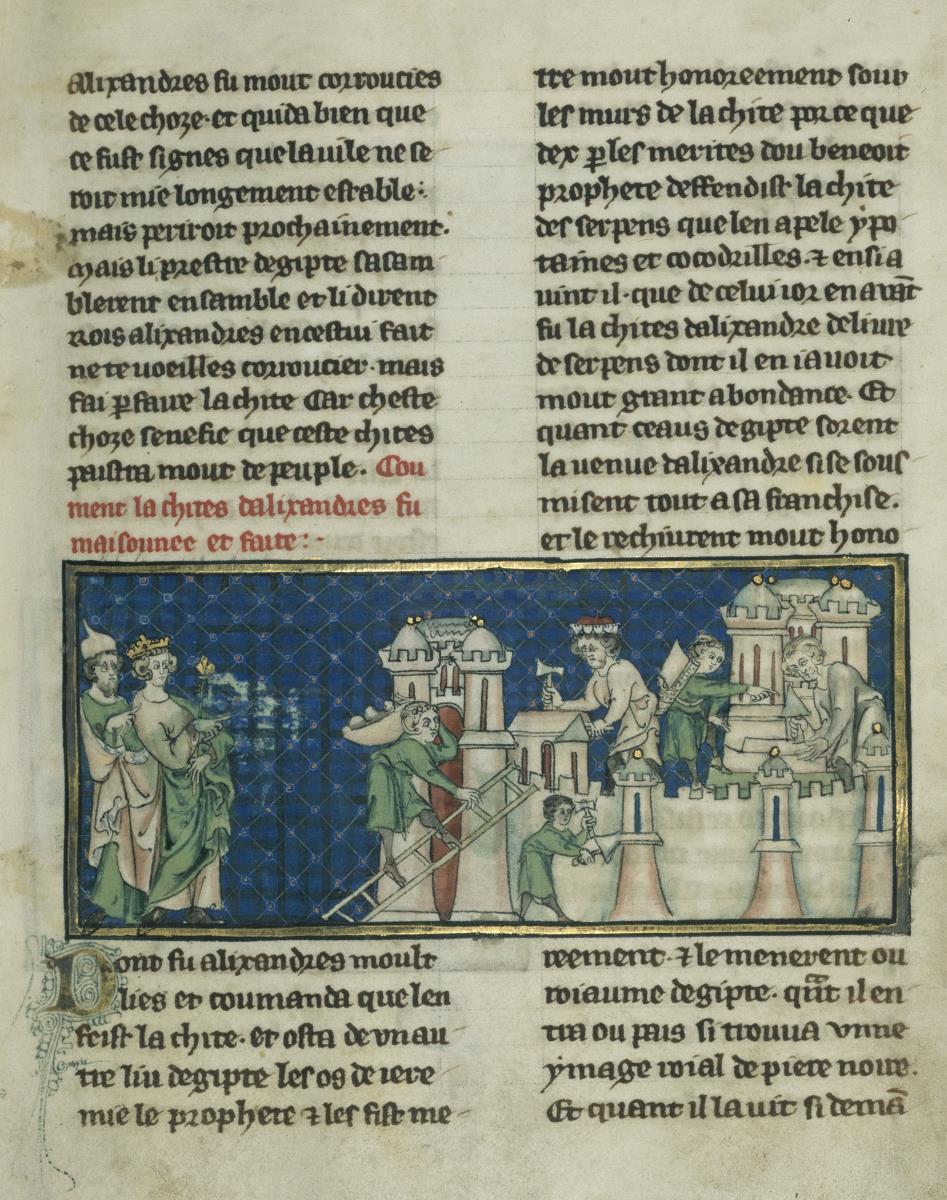 Alixandres fu mout corroucies
de cele choze· et quida bien que
ce fust signes que la uile ne se
roit mie longement estable:·
mais periroit prochainement·
Mais li prestre degipte sasam
blerent ensamble et li dirent
rois alixandres en cestui fait
ne te uoeilles corroucier· mais
fai ꝑ faire la chite Car cheste
choze senefie que ceste chites
paistra mout de peuple· Cou
ment la chites dalixandres fu
maisounee et faite:·
Dont fu alixandres moult
lies et coumanda que len
feist la chite· et osta de vn au
tre liu degipte les os de iere
mie le prophete ⁊ les fist me
ttre mout honoreement souz
les murs de la chite por ce que
dex ꝑ les merites dou beneoit
prophete deffendist la chite
des serpens que len apele ypo
taines et cocodrilles· ⁊ ensi a
uint il· que de celui ior en auãt
fu la chites dalixandre deliure
de serpens dont il en i auoit
mout grant abondance· Et
quant ceaus degipte sorent
la uenue dalixandre si se sous
misent tout a sa franchise·
et le rechiurent mout hono
reement· ⁊ le menerent ou
roiaume degipte· qᷓnt il en
tra ou pais si trouua vnne
ymage roial de piere noire·
Et quant il la uit si demã